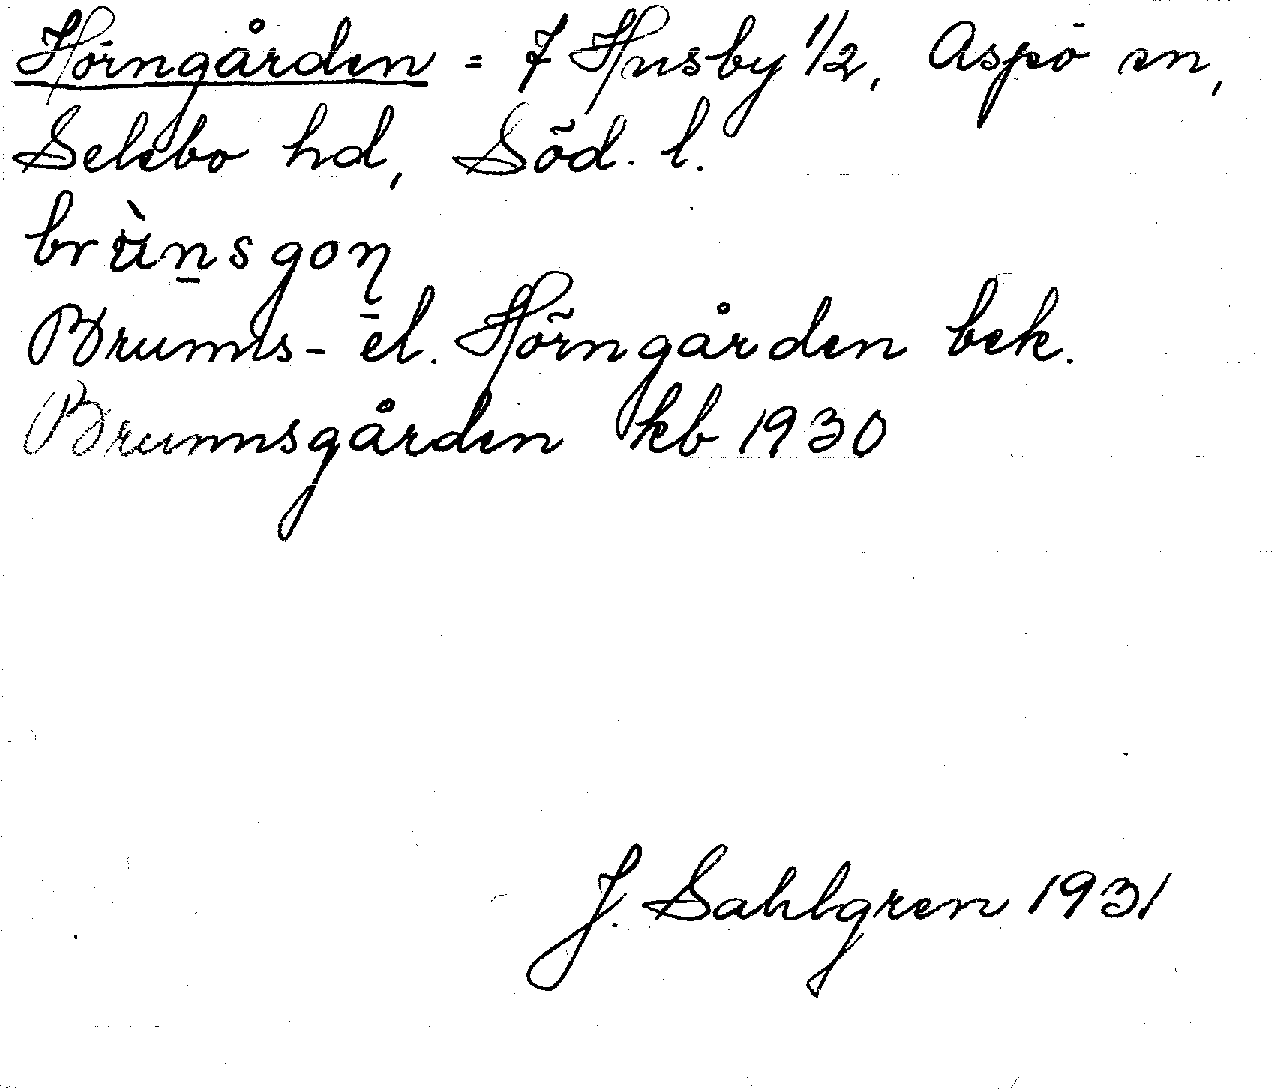 Hörngården = 7 Husby 1/2, Aspö sn,
Selebo hd, Söd. l.
brùn̲sgoɳ̲
Brunns- el. Hörngården bek.
Brunnsgården kb 1930
J. Sahlgren 1931